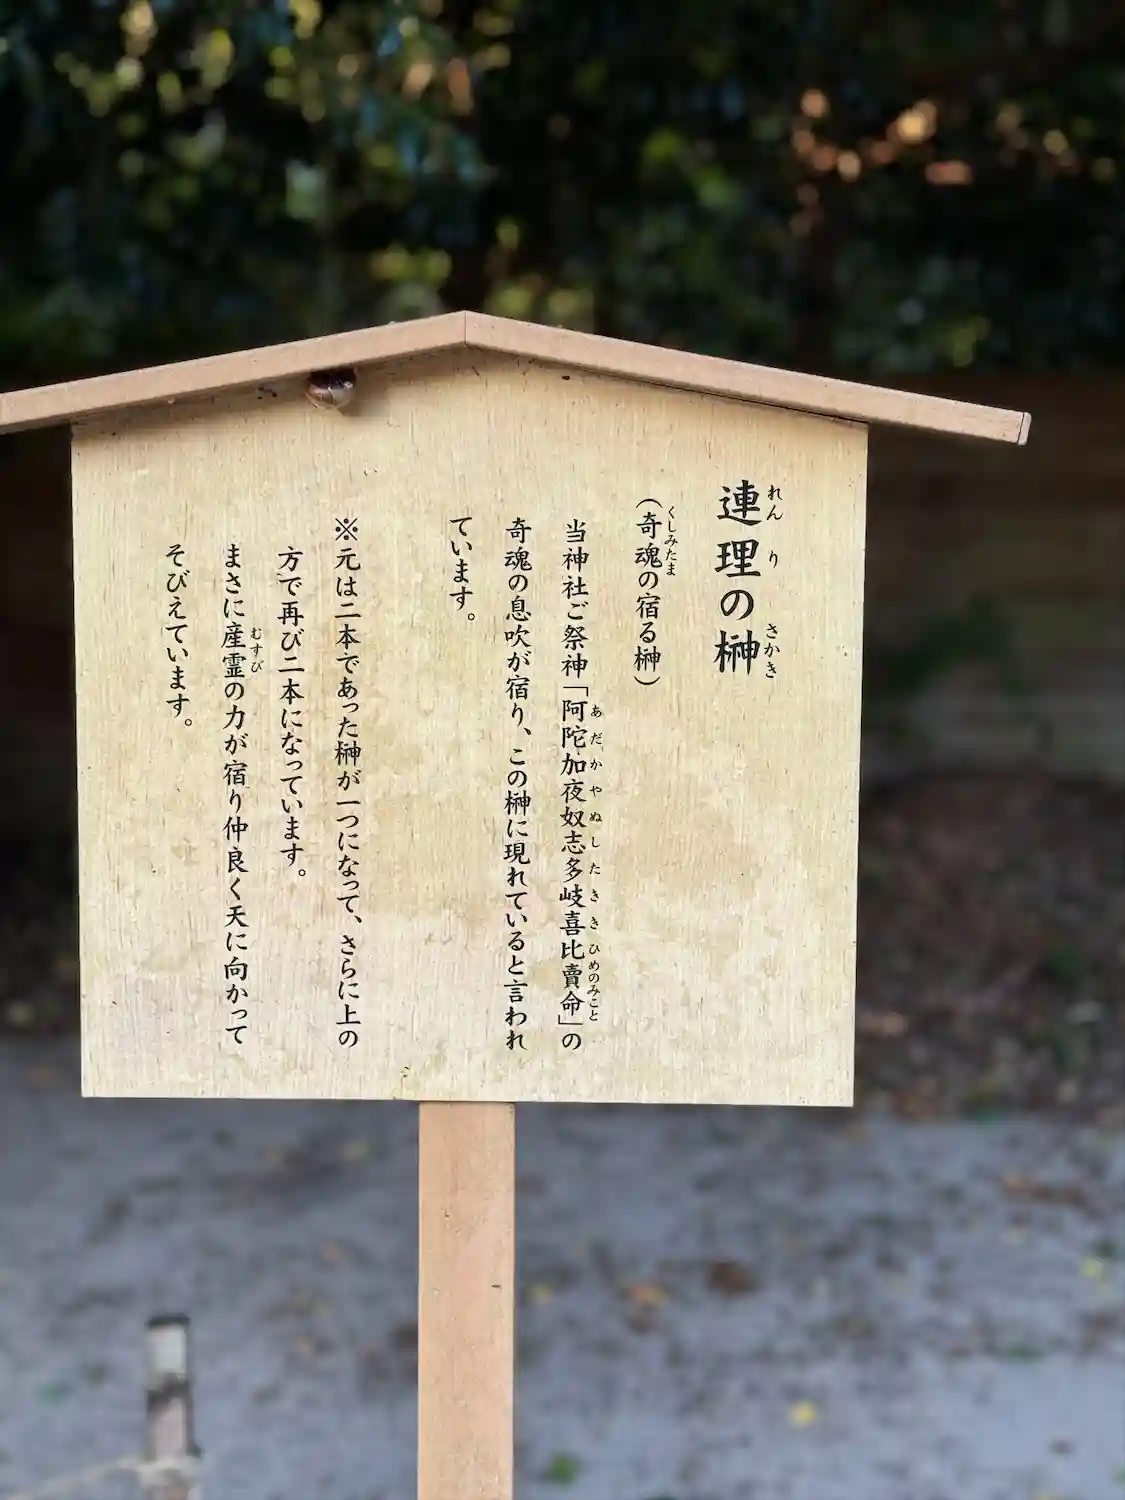 連理の榊
れんり さかき
(奇魂の宿る榊)
くしみたま
当神社ご祭神「阿陀加夜奴志多岐喜比賣命」の
あだかやぬしたききひめのみこと
奇魂の息吹が宿り、この榊に現れていると言われ
ています。
※元は二本であった榊が一つになって、さらに上の
方で再び二本になっています。
まさに産霊の力が宿り仲良く天に向かって
むすび
そびえています。